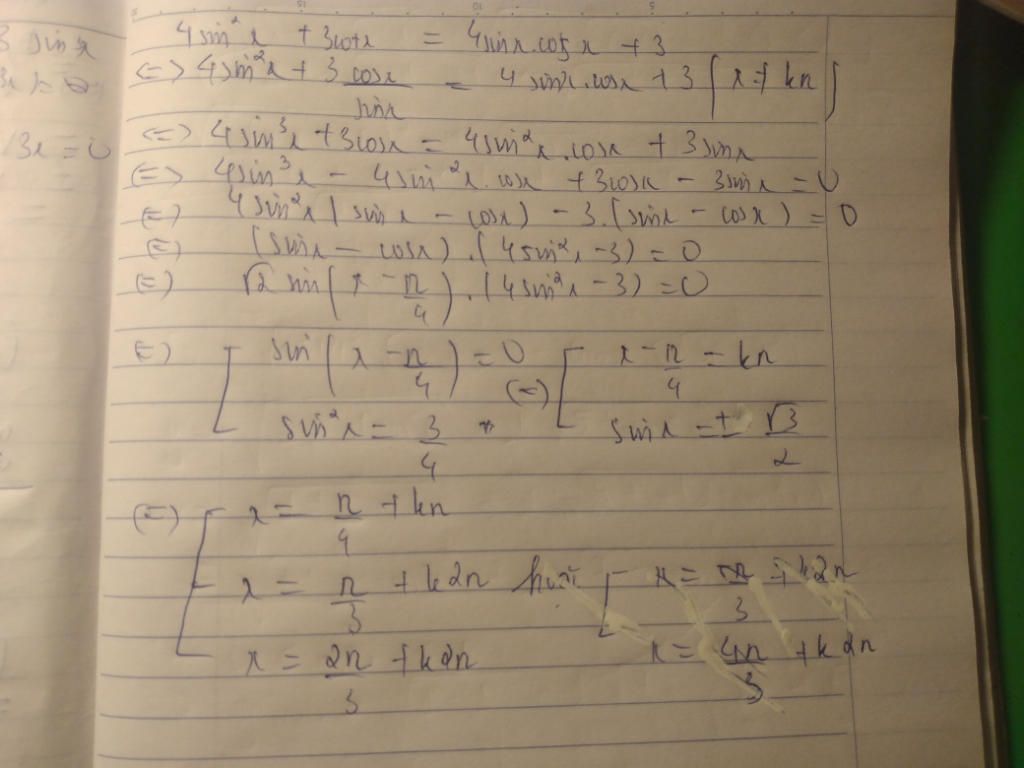 4sin²x + 3cotx = 4sinx.cosx + 3
<=> 4sin²x + 3 cosx/sinx = 4sinx.cosx + 3 (x ≠ kπ)
<=> 4sin³x + 3cosx = 4sin²x.cosx + 3sinx
<=> 4sin³x - 4sin²x.cosx + 3cosx - 3sinx = 0
<=> 4sin²x(sinx - cosx) - 3.(sinx - cosx) = 0
<=> (sinx - cosx).(4sin²x - 3) = 0
<=> √2 sin(x - π/4).(4sin²x - 3) = 0
<=> [ sin(x - π/4) = 0 <=> [ x - π/4 = kπ
sin²x = 3/4 sinx = ± √3/2
<=> [ x = π/4 + kπ
x = π/3 + k2π [ x = π/3 + k2π
x = 2π/3 + k2π x = 4π/3 + k2π
3 sinx
13x = 0